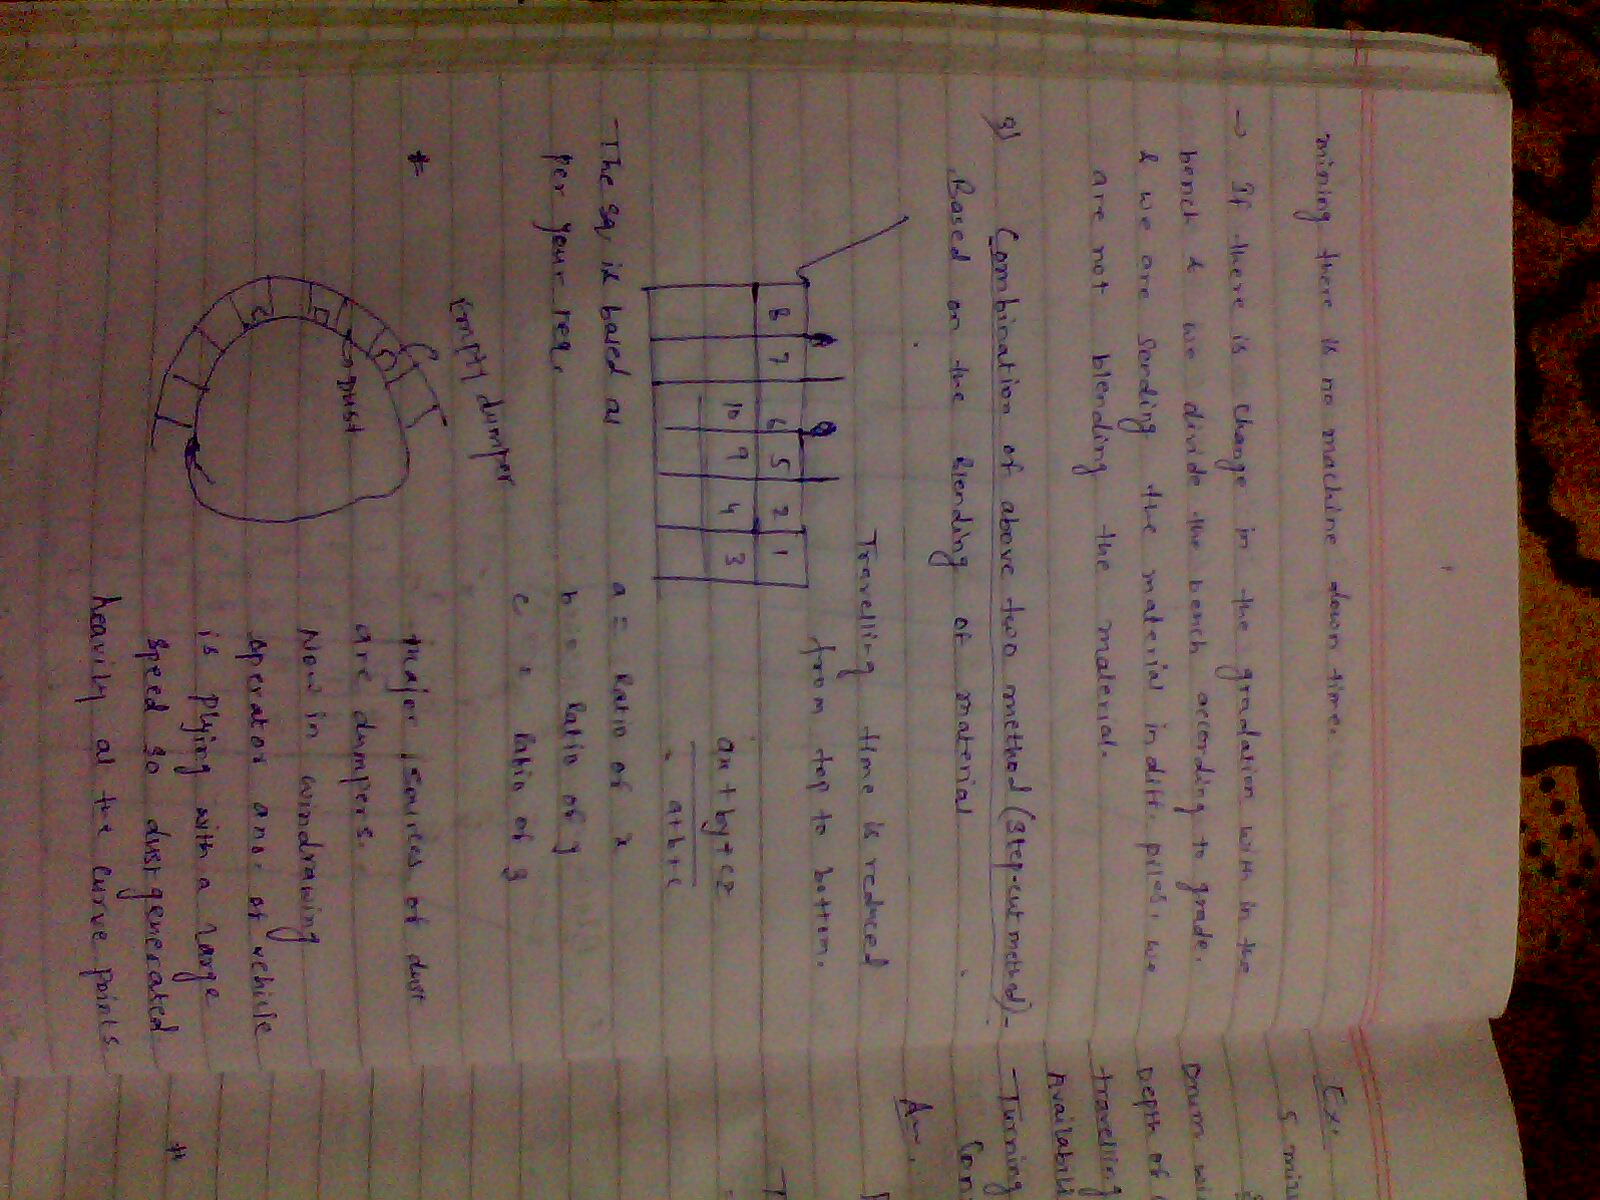 mining there is no machine down time.
→ If there is change in the gradation with in the
bench & we divide the bench according to grade.
& we are sending the material in diff. piles, we
are not blending the material.
3) Combination of above two method (step-cut method) -
Based on the Blending of material
Travelling time is reduced
from top to bottom.
8 7 6 5 2 1
10 9 4 3
ax + by + cz
a+b+c
- The sq. is based as
per your req.
a = Ratio of x
b = Ratio of y
c = Ratio of z
#
Empty dumper
Dust
major sources of dust
are dumpers.
Now in windrowing
operator and of vehicle
is plying with a large
speed so dust generated
heavily at the curve points
Ex.
5
Drum
Depth of
travelling
Availabili
- Turning
Con
#